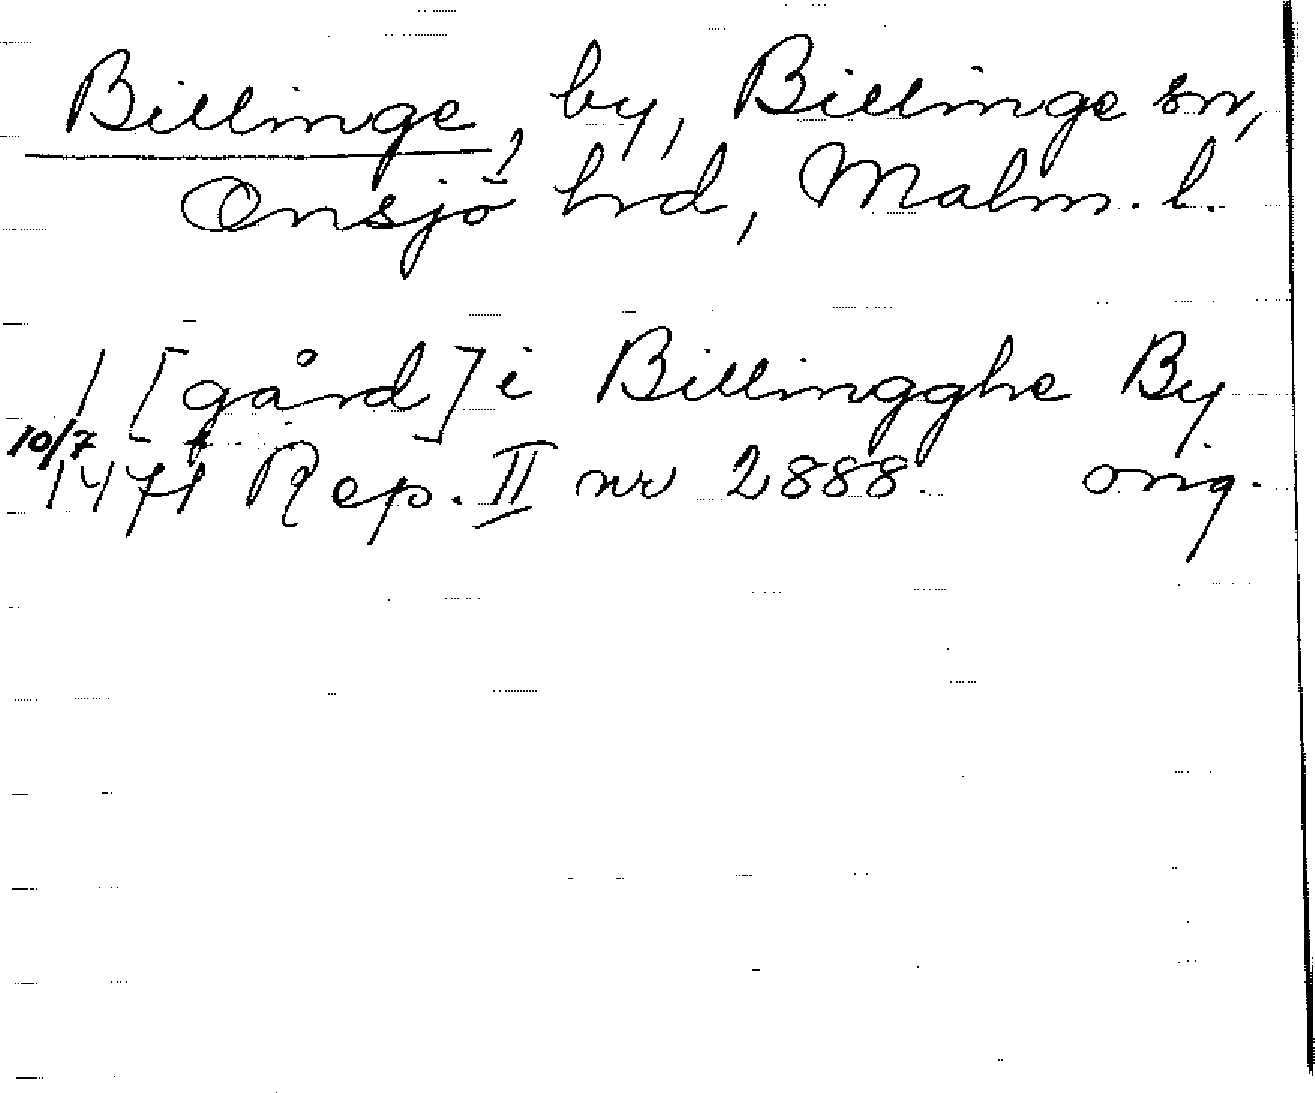 Billinge, by, Billinge sn,
Onsjö hd, Malm. l.
1 [gård] i Billingghe By
10/7
1471 Rep. II nr 2888. orig.